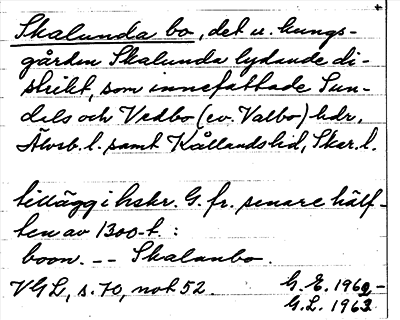 Skalunda bo, det u. kungs-
gården Skalunda lydande di-
strikt, som innefattade Sun-
dals och Vedbo (ev. Valbo) hdr,
Älvsb. l. samt Kållandshd, Skar. l.
tillägg i hskr. G. fr. senare hälf-
ten av 1300-t. :
boon. -- Skalanbo.
VGL, s. 70, not 52.
G. E. 1962,-
G. L. 1963